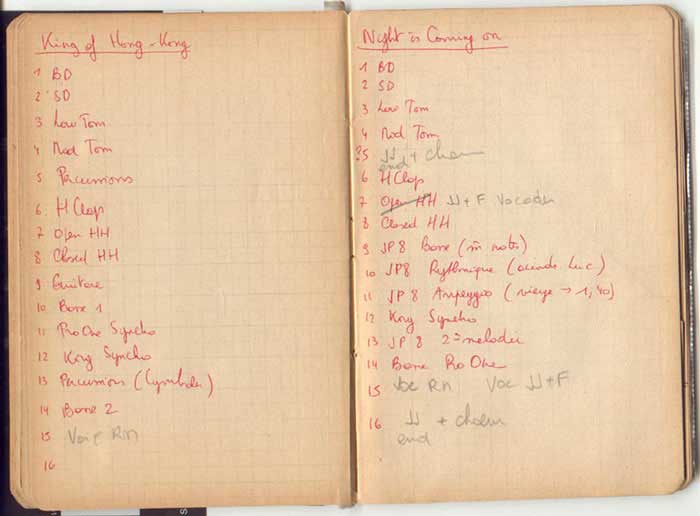 King of Hong-Kong
1 BD
2 SD
3 Low Tom
4 Med Tom
5 Percussions
6 H Clap
7 Open HH
8 Closed HH
9 Guitare
10 Basse 1
11 Pro One Synchro
12 Korg Synchro
13 Percussions (Cymbales)
14 Basse 2
15 Voix RM
16
Night is Coming on
1 BD
2 SD
3 Low Tom
4 Med Tom
?5 JJ + Choeur
end
6 H Clap
7 Open HH JJ + F Vocoder
8 Closed HH
9 JP 8 Basse (
10 JP8 Rythmique (
11 JP 8 Arpeggio ( → 1,40)
12 Korg Synchro
13 JP 8 2e melodie
14 Basse Pro One
15 Voc RM Voc JJ + F
16 JJ + choeur
end